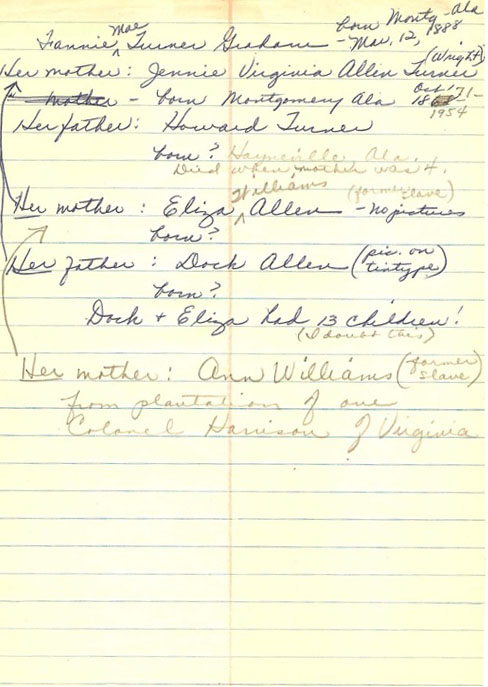 born Montg - Ala
Fannie Mae Turner Graham - Mar. 12, 1888
(Wright)
Her mother: Jennie Virginia Allen Turner
mother - born Montgomery Ala Oct '71 -
1954
Her father: Howard Turner
born? Hayneville Ala.
Died when mother was 4.
Her mother: Eliza Williams Allen (former slave) - no pictures
born?
Her father: Dock Allen (pic. on tintype)
born?
Dock + Eliza had 13 children!
(I doubt this)
Her mother: Ann Williams (former slave)
from plantation of one
Colonel Harrison of Virginia